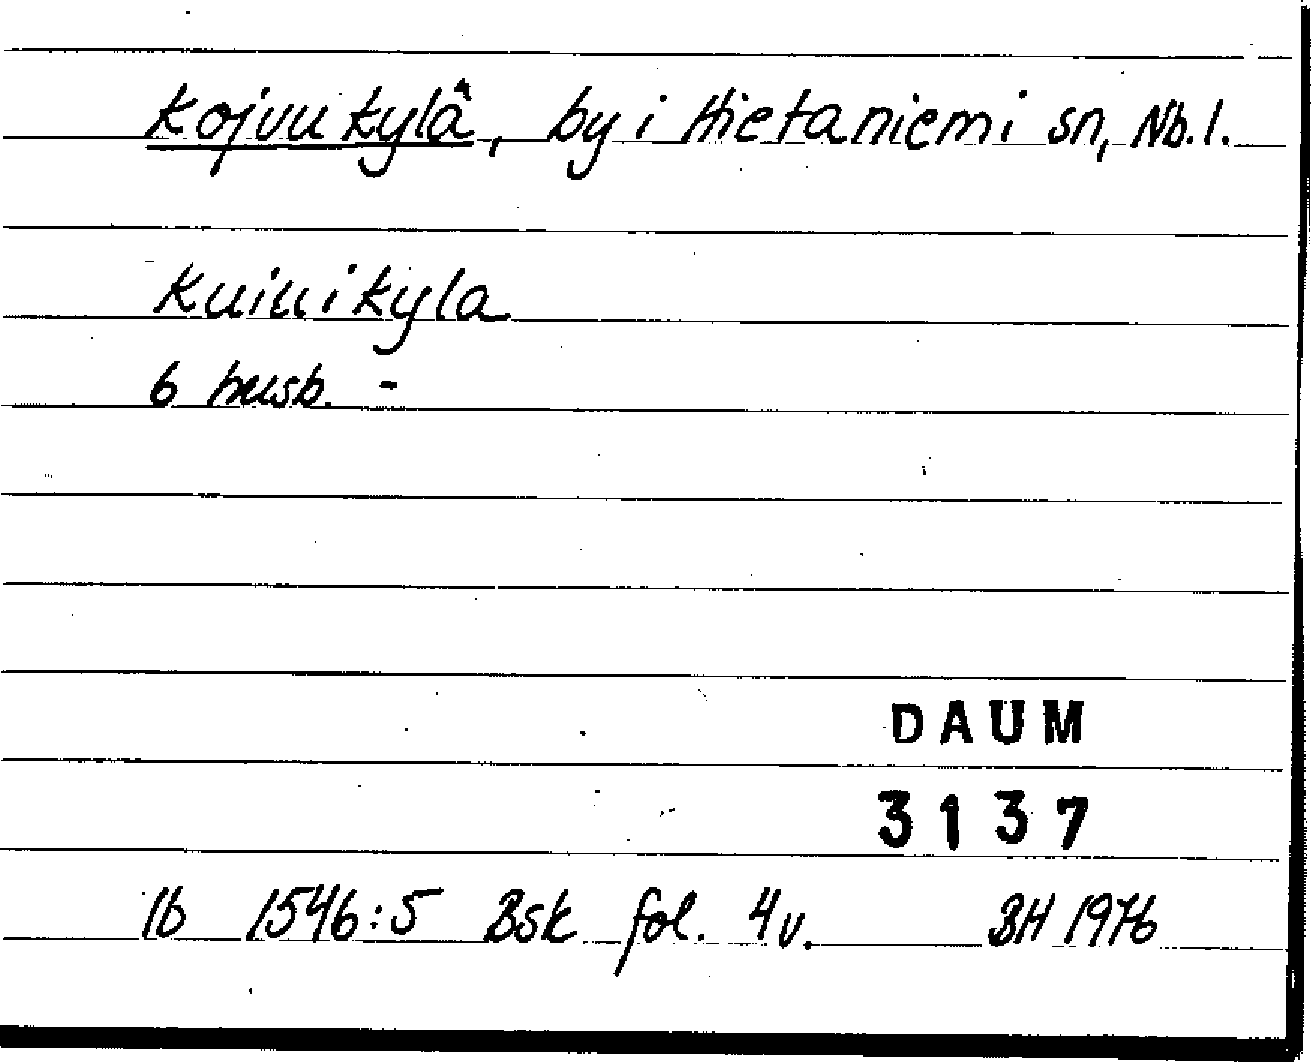 Kojvukylä, by i Hietaniemi sn, Nb. l.
Kuiuikyla
6 husb. -
DAUM
3137
lb 1546:5 Bsk fol. 4v. BH 1976